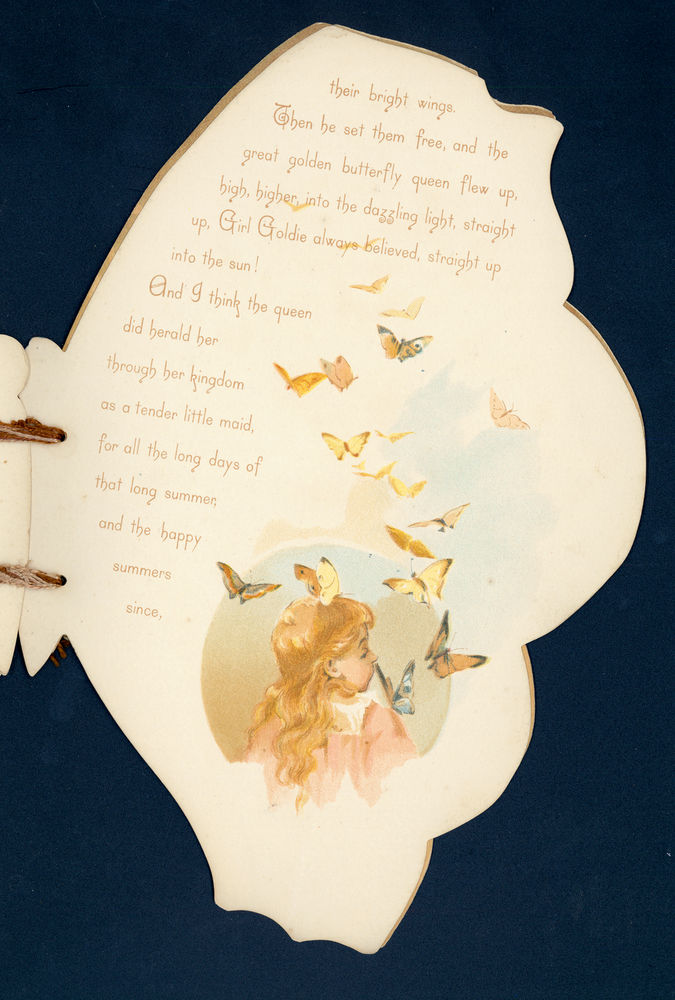 their bright wings.
Then he set them free, and the
great golden butterfly queen flew up,
high, higher, into the dazzling light, straight
up, Girl Goldie always believed, straight up
into the sun!
And I think the queen
did herald her
through her kingdom
as a tender little maid,
for all the long days of
that long summer,
and the happy
summers
since,